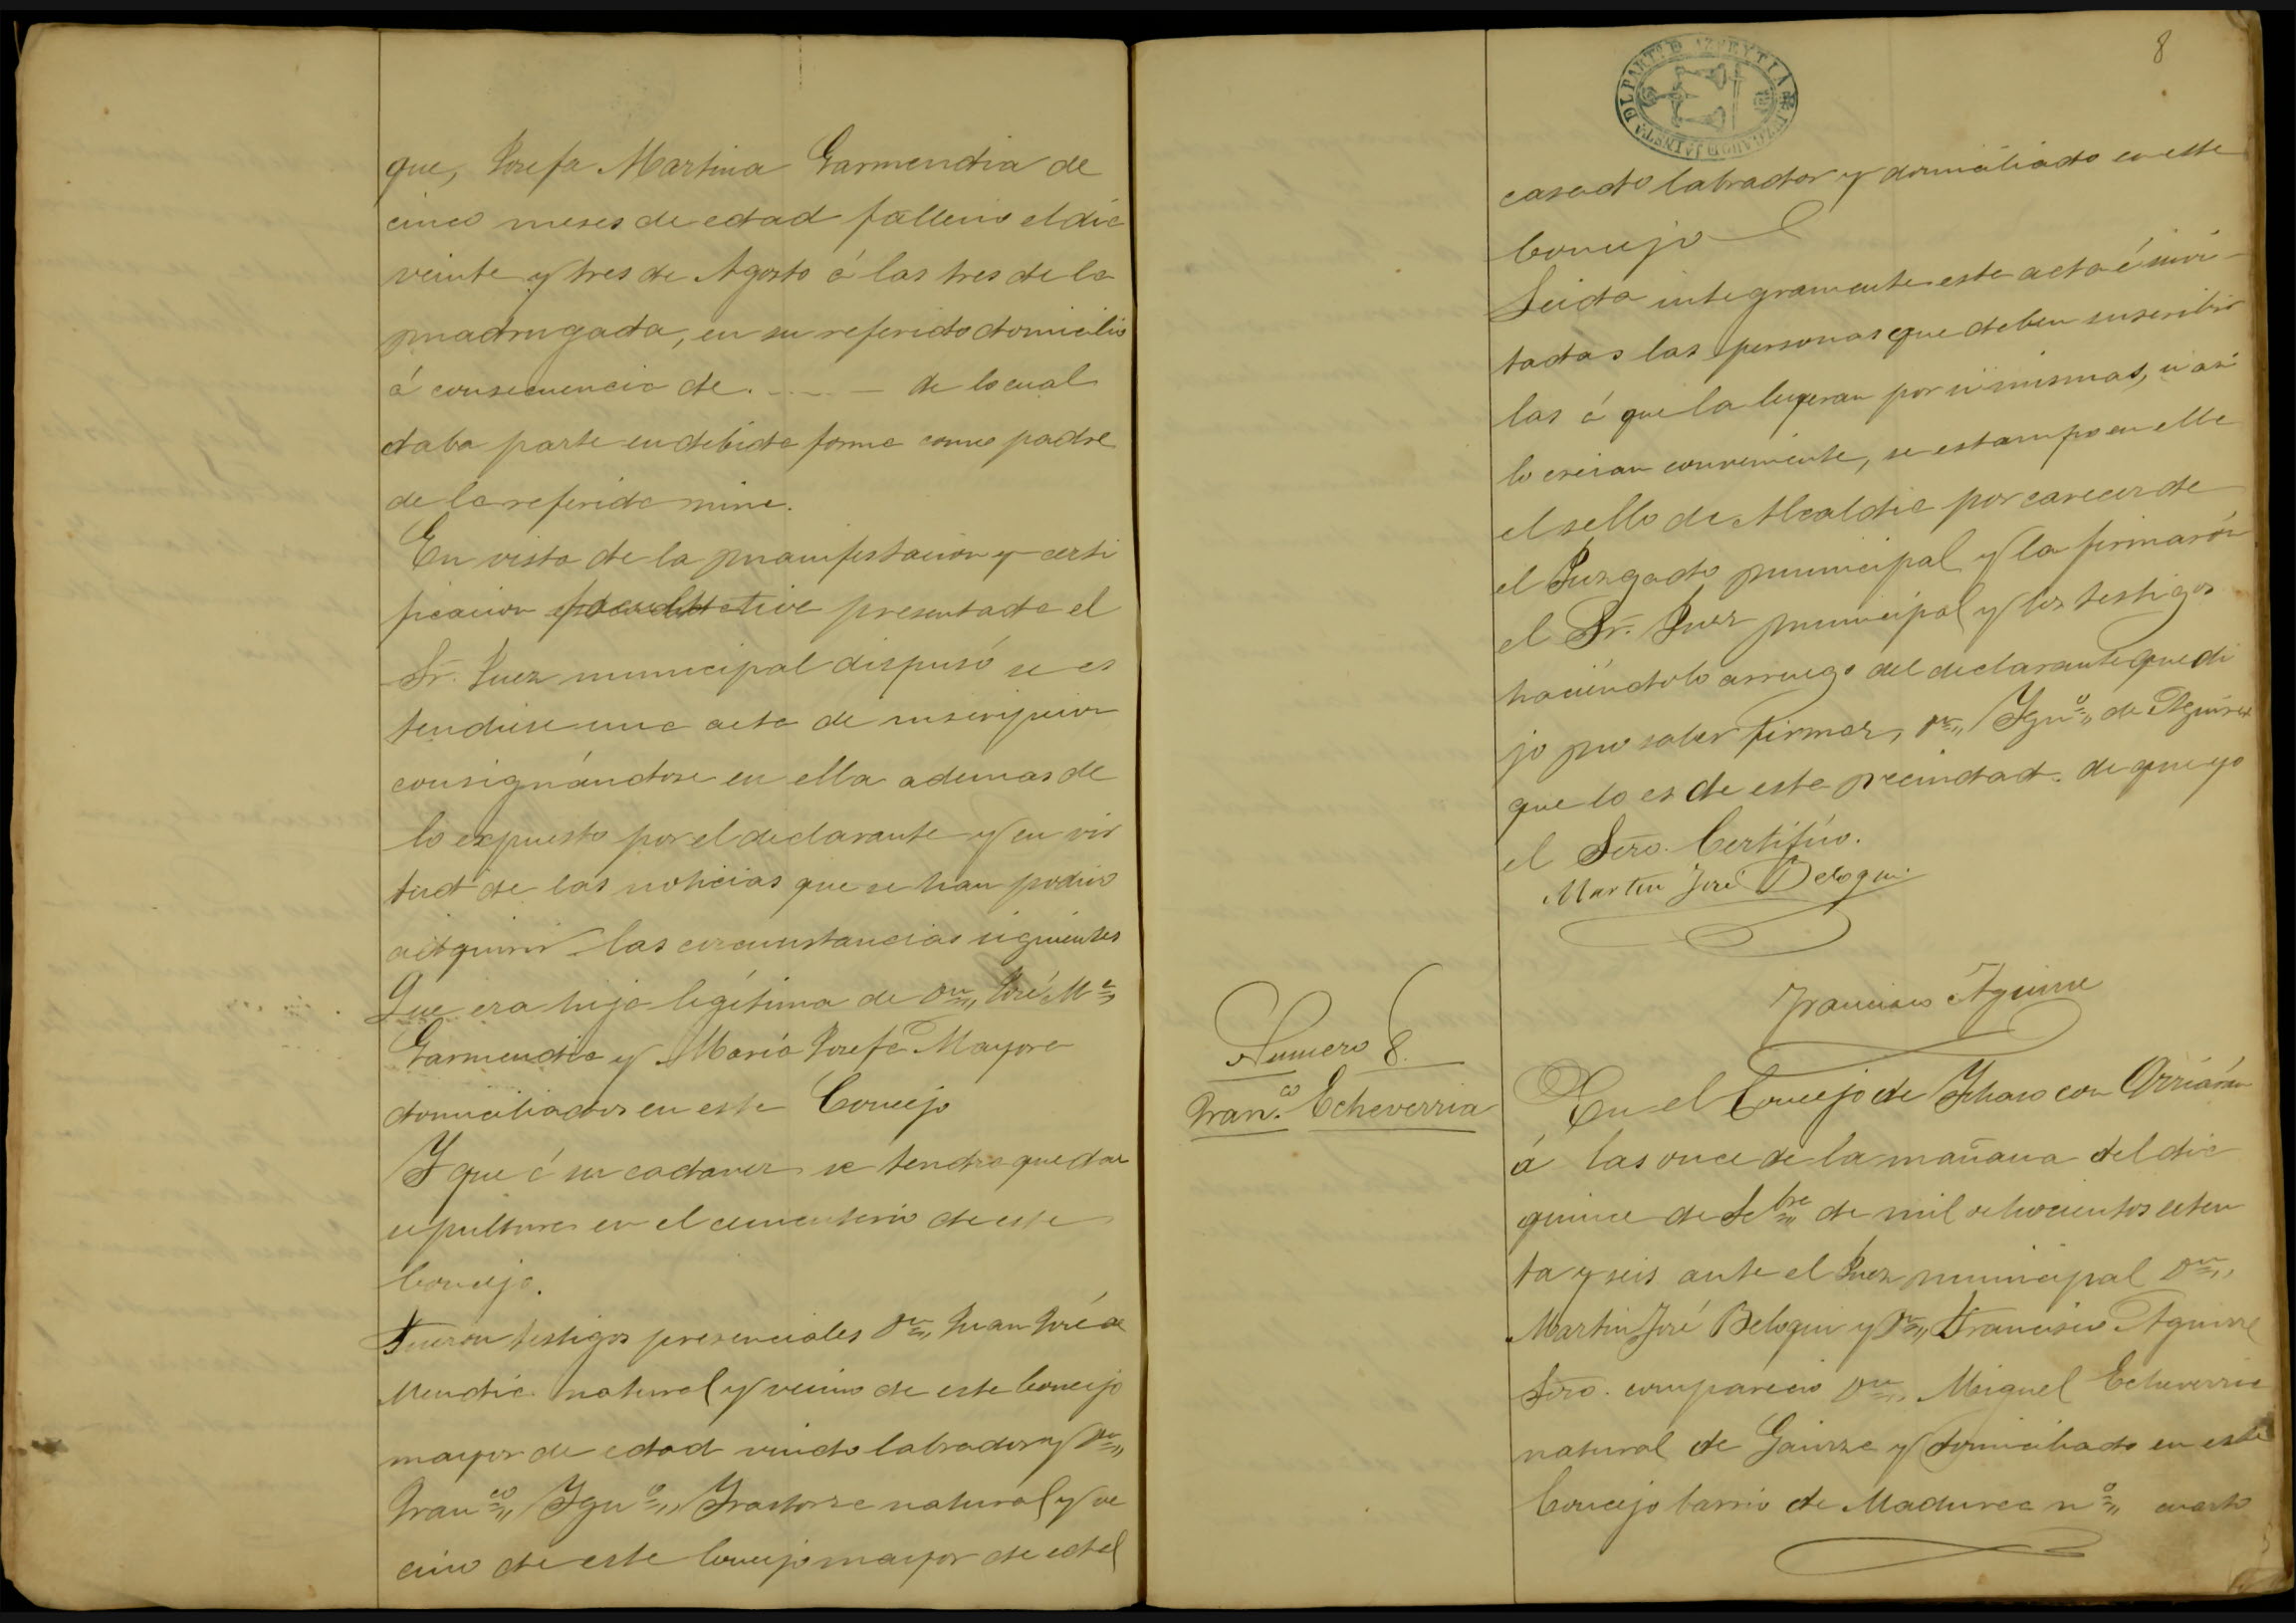 que, Josefa Martina Garmendia de
cinco meses de edad fallecio el dia
veinte y tres de Agosto á las tres de la
madrugada, en su referido domicilio
á consecuencia de . - - . - de lo cual
daba parte en debida forma como padre
de la referida niña.
En vista de la manifestacion y certi
ficacion facultativa presentada el
Sr. Juez municipal dispusó se es
tendiese una acta de inscripcion
consignándose en ella ademas de
lo expuesto por el declarante y en vir
tud de las noticias que se han podido
adquirir las circunstancias siguientes
Que era hija legítima de Dn José Ma
Garmendia y Maria Josefa Mayora
domiciliados en este Concejo
Y que á su cadaver se tendra que dar
sepultura en el cementerio de este
Concejo.
Fueron testigos presenciales Dn Juan José de
Mendia natural y vecino de este Concejo
mayor de edad viudo labrador y Dn
Franco Igno Irastorza natural y ve
cino de este Concejo mayor de edad
8
PARTO D AZPEYTIA
JUZGADO D
casado labrador y domiciliado en este
Concejo
Leida integramente este acta é invi
tadas las personas que deben suscribir
las á que la leyeran por si mismas, si asi
lo creian conveniente, se estampo en ella
el sello de Alcaldia por carecer de
el Juzgado municipal y la firmarón
el Sr. Juez municipal y los testigos
haciéndolo arruego del declarante que di
jo no saber firmar, Dn Igno de Aguirre
que lo es de esta vecindad. de que yo
el Srio. Certifico.
Martin José Beloqui.
Francisco Aguirre
Numero 8.
Franco. Echeverria
En el Concejo de Ichaso con Arriáran
á las once de la mañana del dia
quince de Sbre de mil ochocientos seten
ta y seis ante el Juez municipal Dn
Martin José Beloqui y Dn Francisco Aguirre
Srio. comparecio Dn Miguel Echeverria
natural de Gainza y domiciliado en este
Concejo barrio de no cuarto